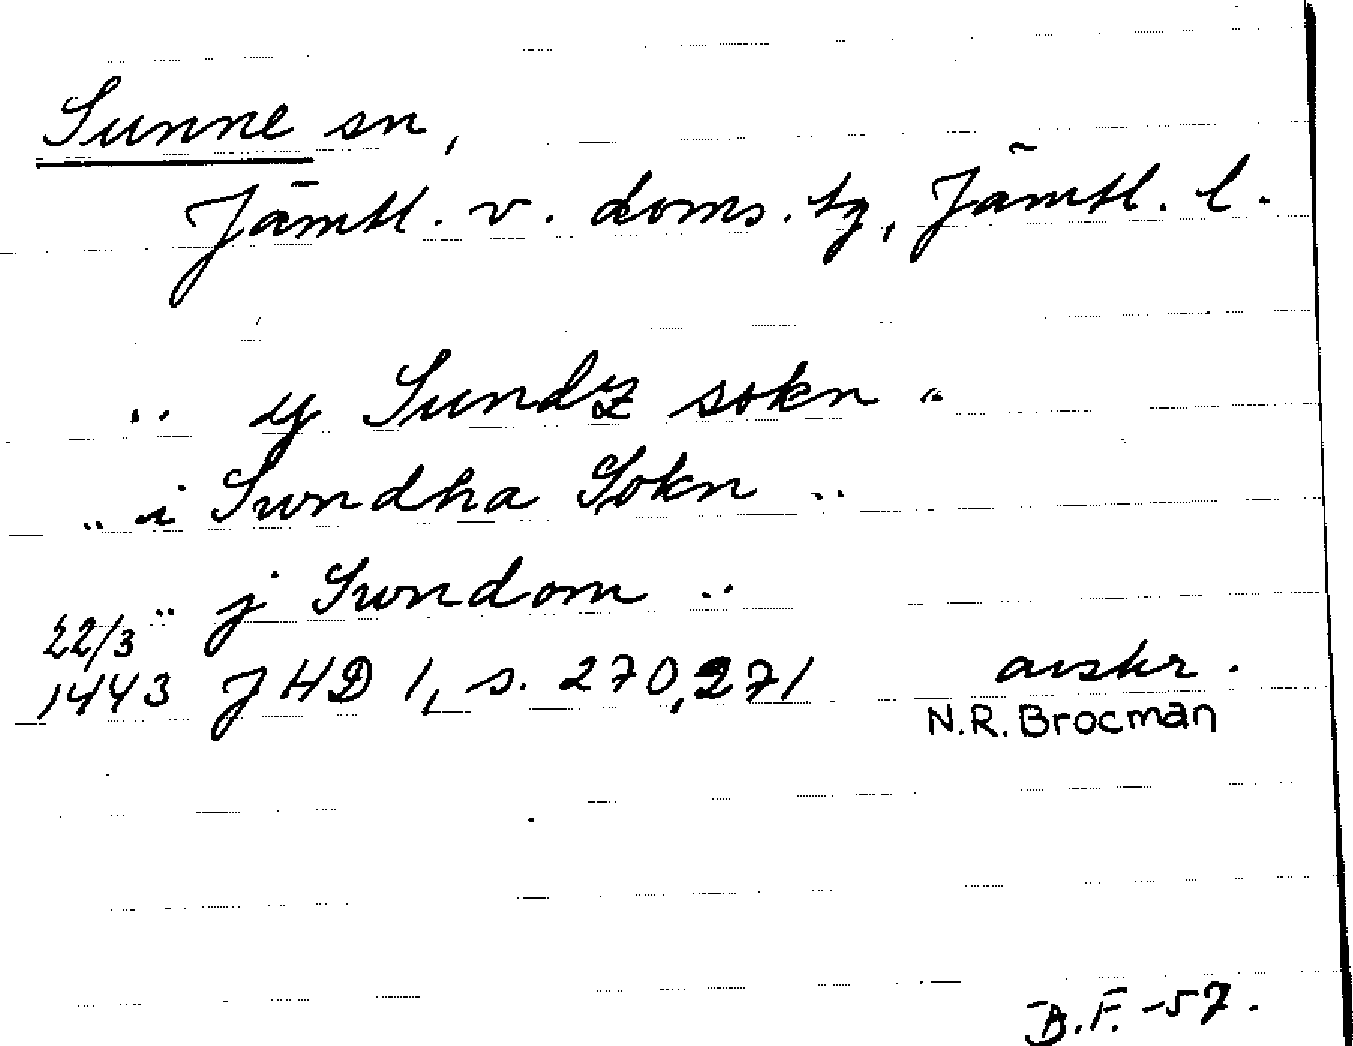 Sunne sn,
Jämtl. v. doms. tg, Jämtl. l.
.. ij Sundz sokn ..
.. i Swndha Sokn ..
.. j Swndom ..
22/3
1443 JHD 1, s. 270,271 avskr.
N.R. Brocman
B.F. -57.